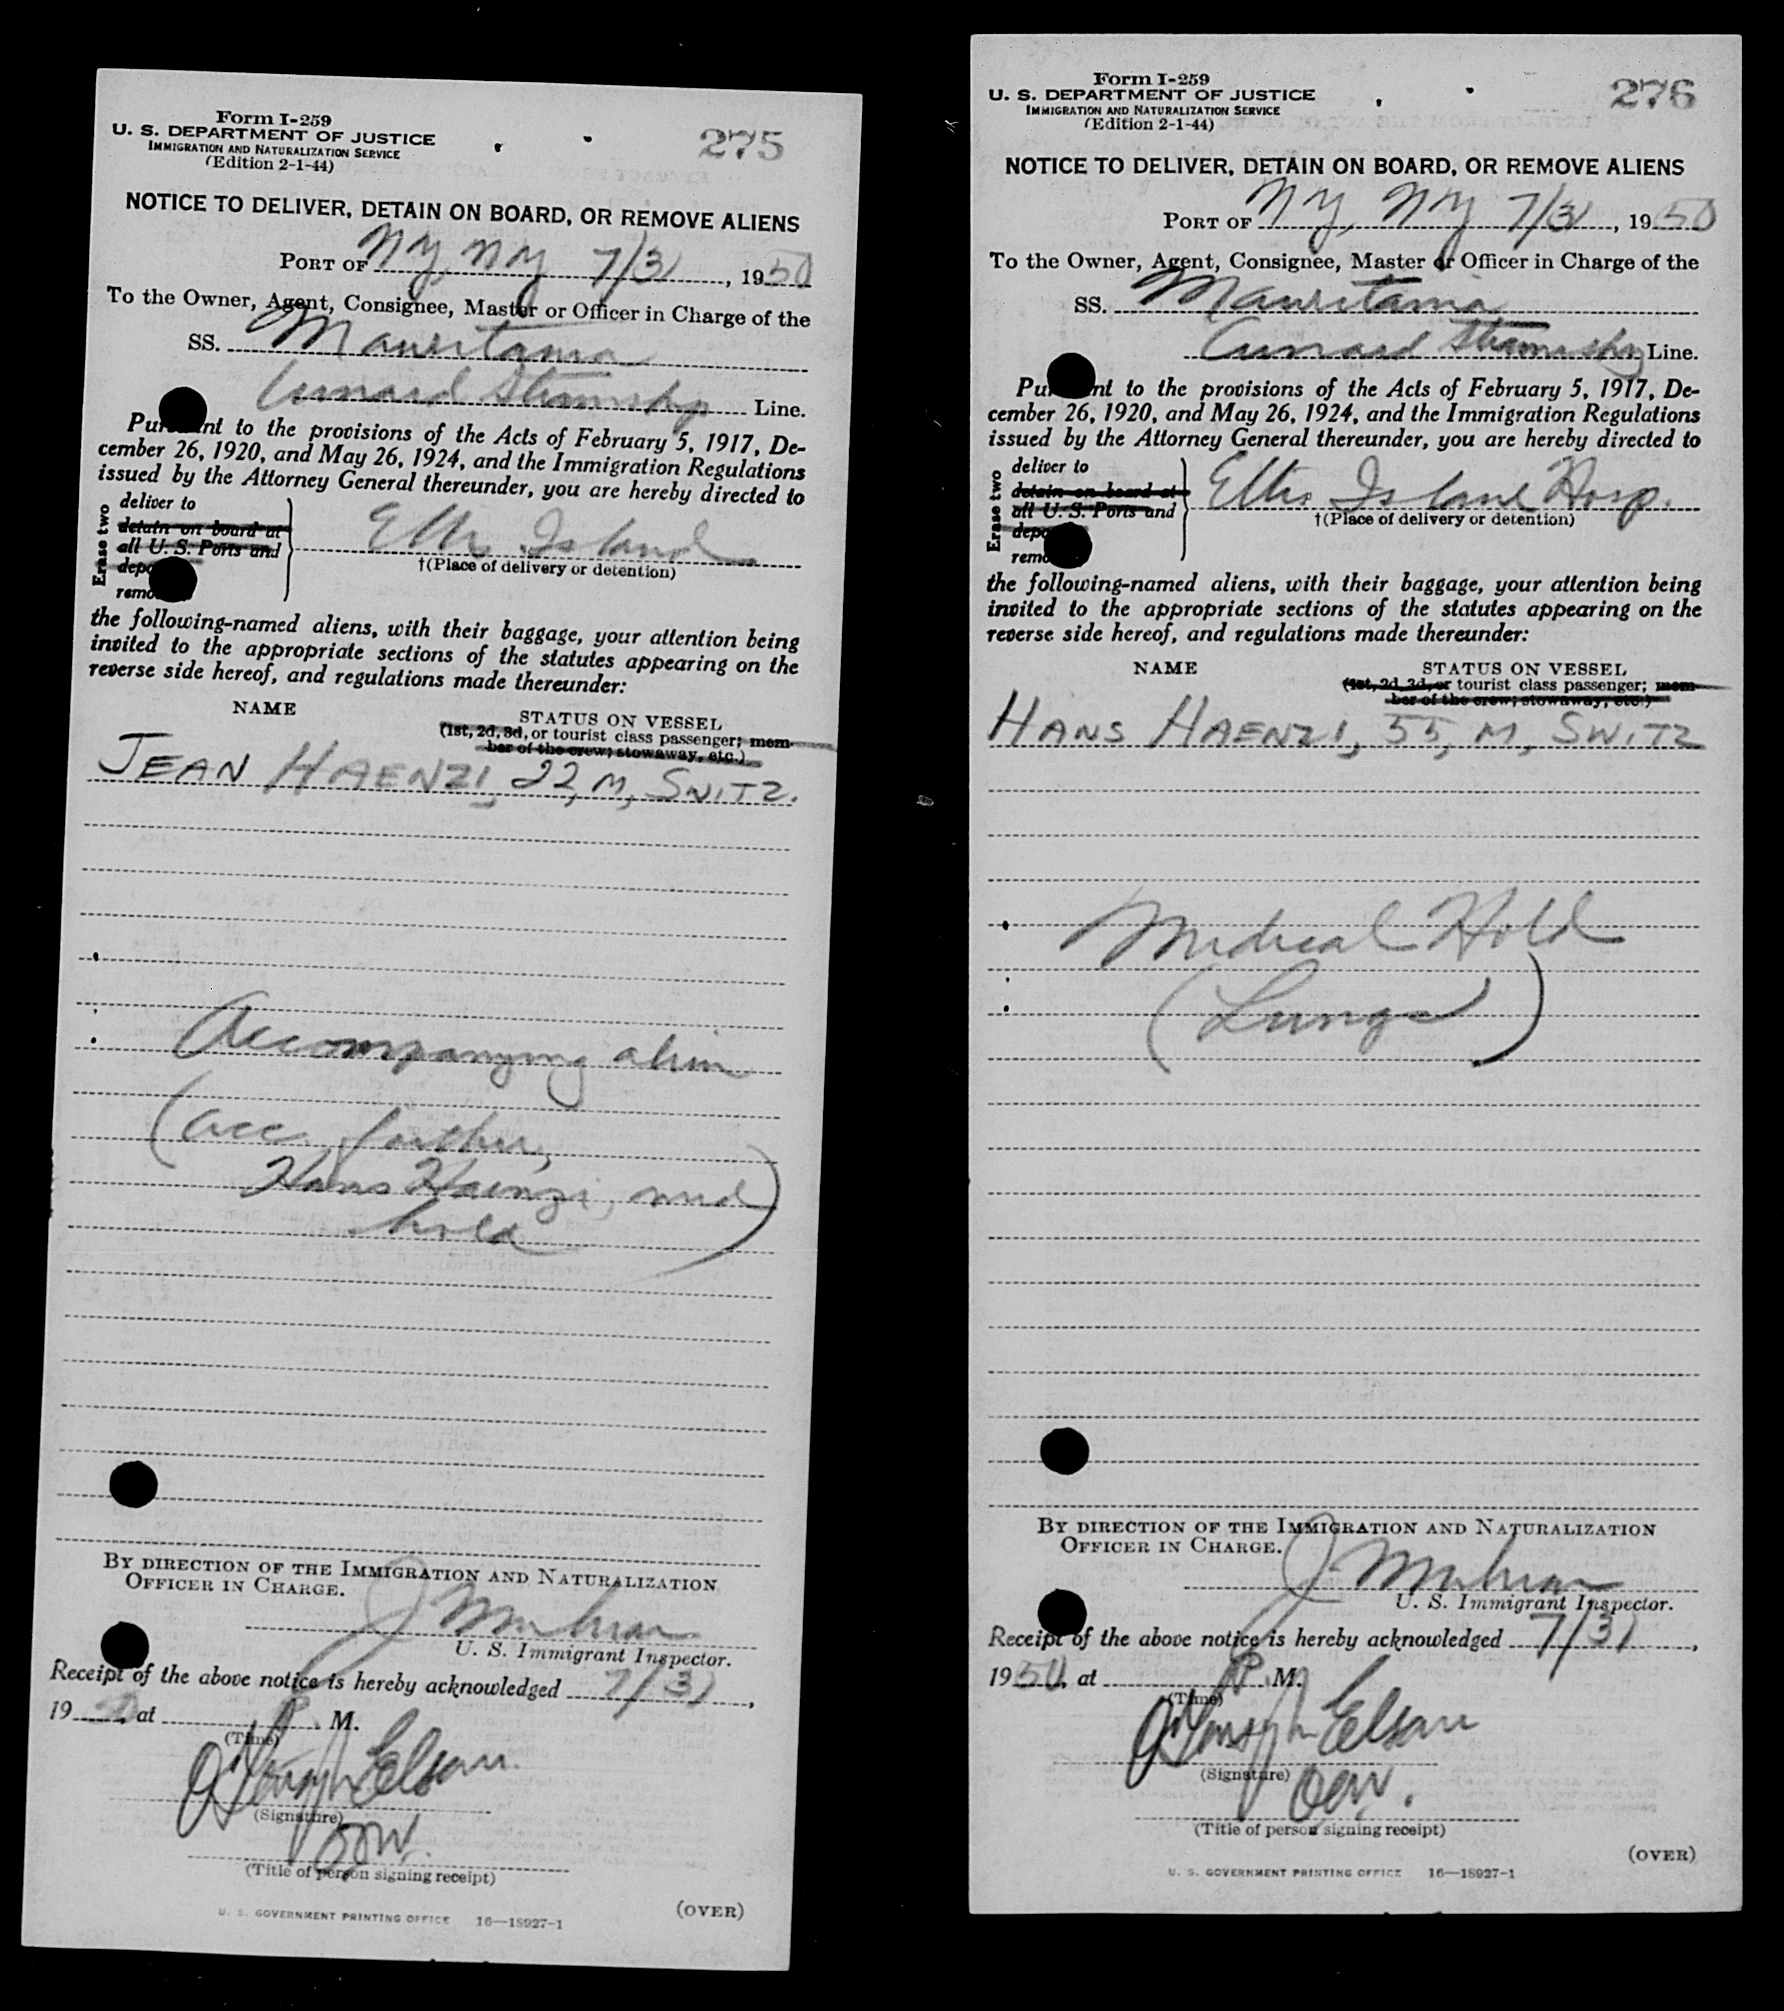 Form I-259
U. S. DEPARTMENT OF JUSTICE
IMMIGRATION AND NATURALIZATION SERVICE
(Edition 2-1-44)
275
NOTICE TO DELIVER, DETAIN ON BOARD, OR REMOVE ALIENS
PORT OF NY, NY 7/31, 1950
To the Owner, Agent, Consignee, Master or Officer in Charge of the
SS. Mauritania
Cunard Steamship Line.
Pursuant to the provisions of the Acts of February 5, 1917, De-
cember 26, 1920, and May 26, 1924, and the Immigration Regulations
issued by the Attorney General thereunder, you are hereby directed to
Erase two
deliver to
detain on board at
all U. S. Ports and
Ellis Island
†(Place of delivery or detention)
the following-named aliens, with their baggage, your attention being
invited to the appropriate sections of the statutes appearing on the
reverse side hereof, and regulations made thereunder:
NAME STATUS ON VESSEL
(1st, 2d, 3d, or tourist class passenger; mem-
ber of the crew; stowaway, etc.)
JEAN HAENZI, 22, M, SWITZ.
Accompanying alien
(acc father,
Hans Haenzi, med
hold)
BY DIRECTION OF THE IMMIGRATION AND NATURALIZATION
OFFICER IN CHARGE.
U. S. Immigrant Inspector.
Receipt of the above notice is hereby acknowledged 7/31,
1950, at P. M.
(Time)
(Signature)
(Title of person signing receipt)
(OVER)
U. S. GOVERNMENT PRINTING OFFICE 16—18927-1
Form I-259
U. S. DEPARTMENT OF JUSTICE
IMMIGRATION AND NATURALIZATION SERVICE
(Edition 2-1-44)
276
NOTICE TO DELIVER, DETAIN ON BOARD, OR REMOVE ALIENS
PORT OF NY, NY 7/31, 1950
To the Owner, Agent, Consignee, Master or Officer in Charge of the
SS. Mauritania
Cunard Steamship Line.
Pursuant to the provisions of the Acts of February 5, 1917, De-
cember 26, 1920, and May 26, 1924, and the Immigration Regulations
issued by the Attorney General thereunder, you are hereby directed to
Erase two
deliver to
detain on board at
all U. S. Ports and
Ellis Island Hosp.
†(Place of delivery or detention)
the following-named aliens, with their baggage, your attention being
invited to the appropriate sections of the statutes appearing on the
reverse side hereof, and regulations made thereunder:
NAME STATUS ON VESSEL
(1st, 2d, 3d, or tourist class passenger; mem-
ber of the crew; stowaway, etc.)
HANS HAENZI, 55, M, SWITZ
Medical Hold
(Lungs)
BY DIRECTION OF THE IMMIGRATION AND NATURALIZATION
OFFICER IN CHARGE.
U. S. Immigrant Inspector.
Receipt of the above notice is hereby acknowledged 7/31,
1950, at P. M.
(Time)
(Signature)
(Title of person signing receipt)
(OVER)
U. S. GOVERNMENT PRINTING OFFICE 16—18927-1